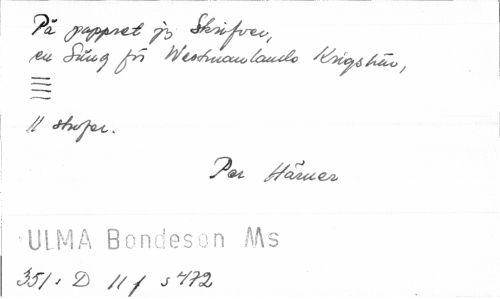 På pappret jag Skrifver,
en Sång för Westmanlands Krigshär,
11 strofer.
Per Härner
ULMA Bondeson Ms
351: D 11 f s 472